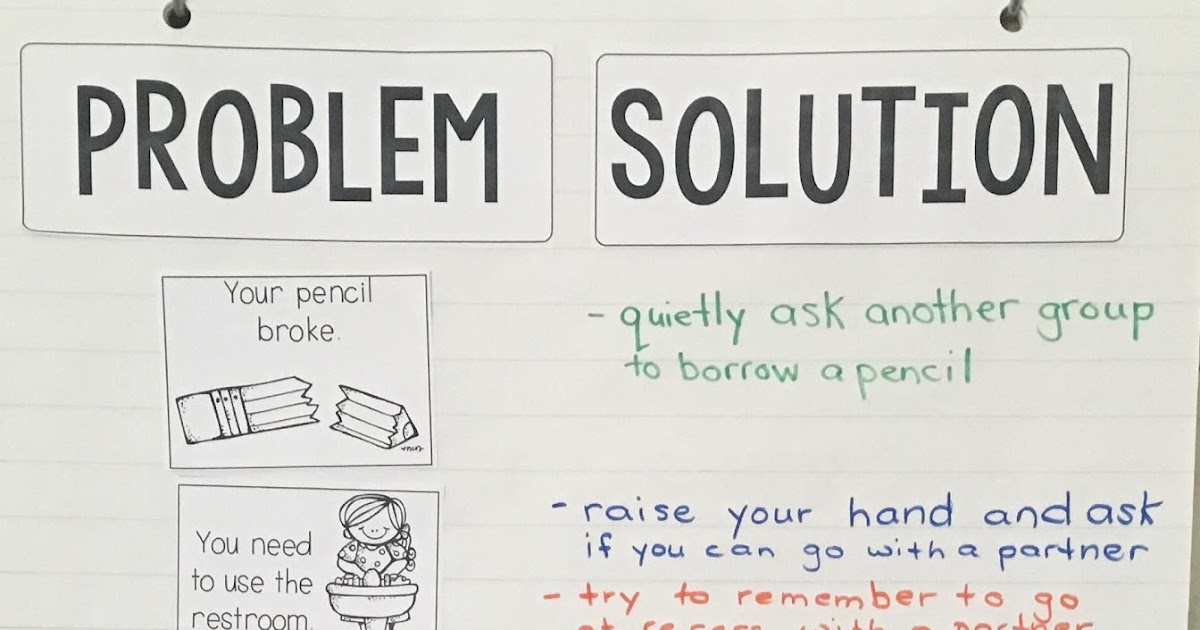 PROBLEM
SOLUTION
Your pencil
broke.
- quietly ask another group
to borrow a pencil
You need
to use the
restroom.
- raise your hand and ask
if you can go with a partner
- try to remember to go
at recess with a partner